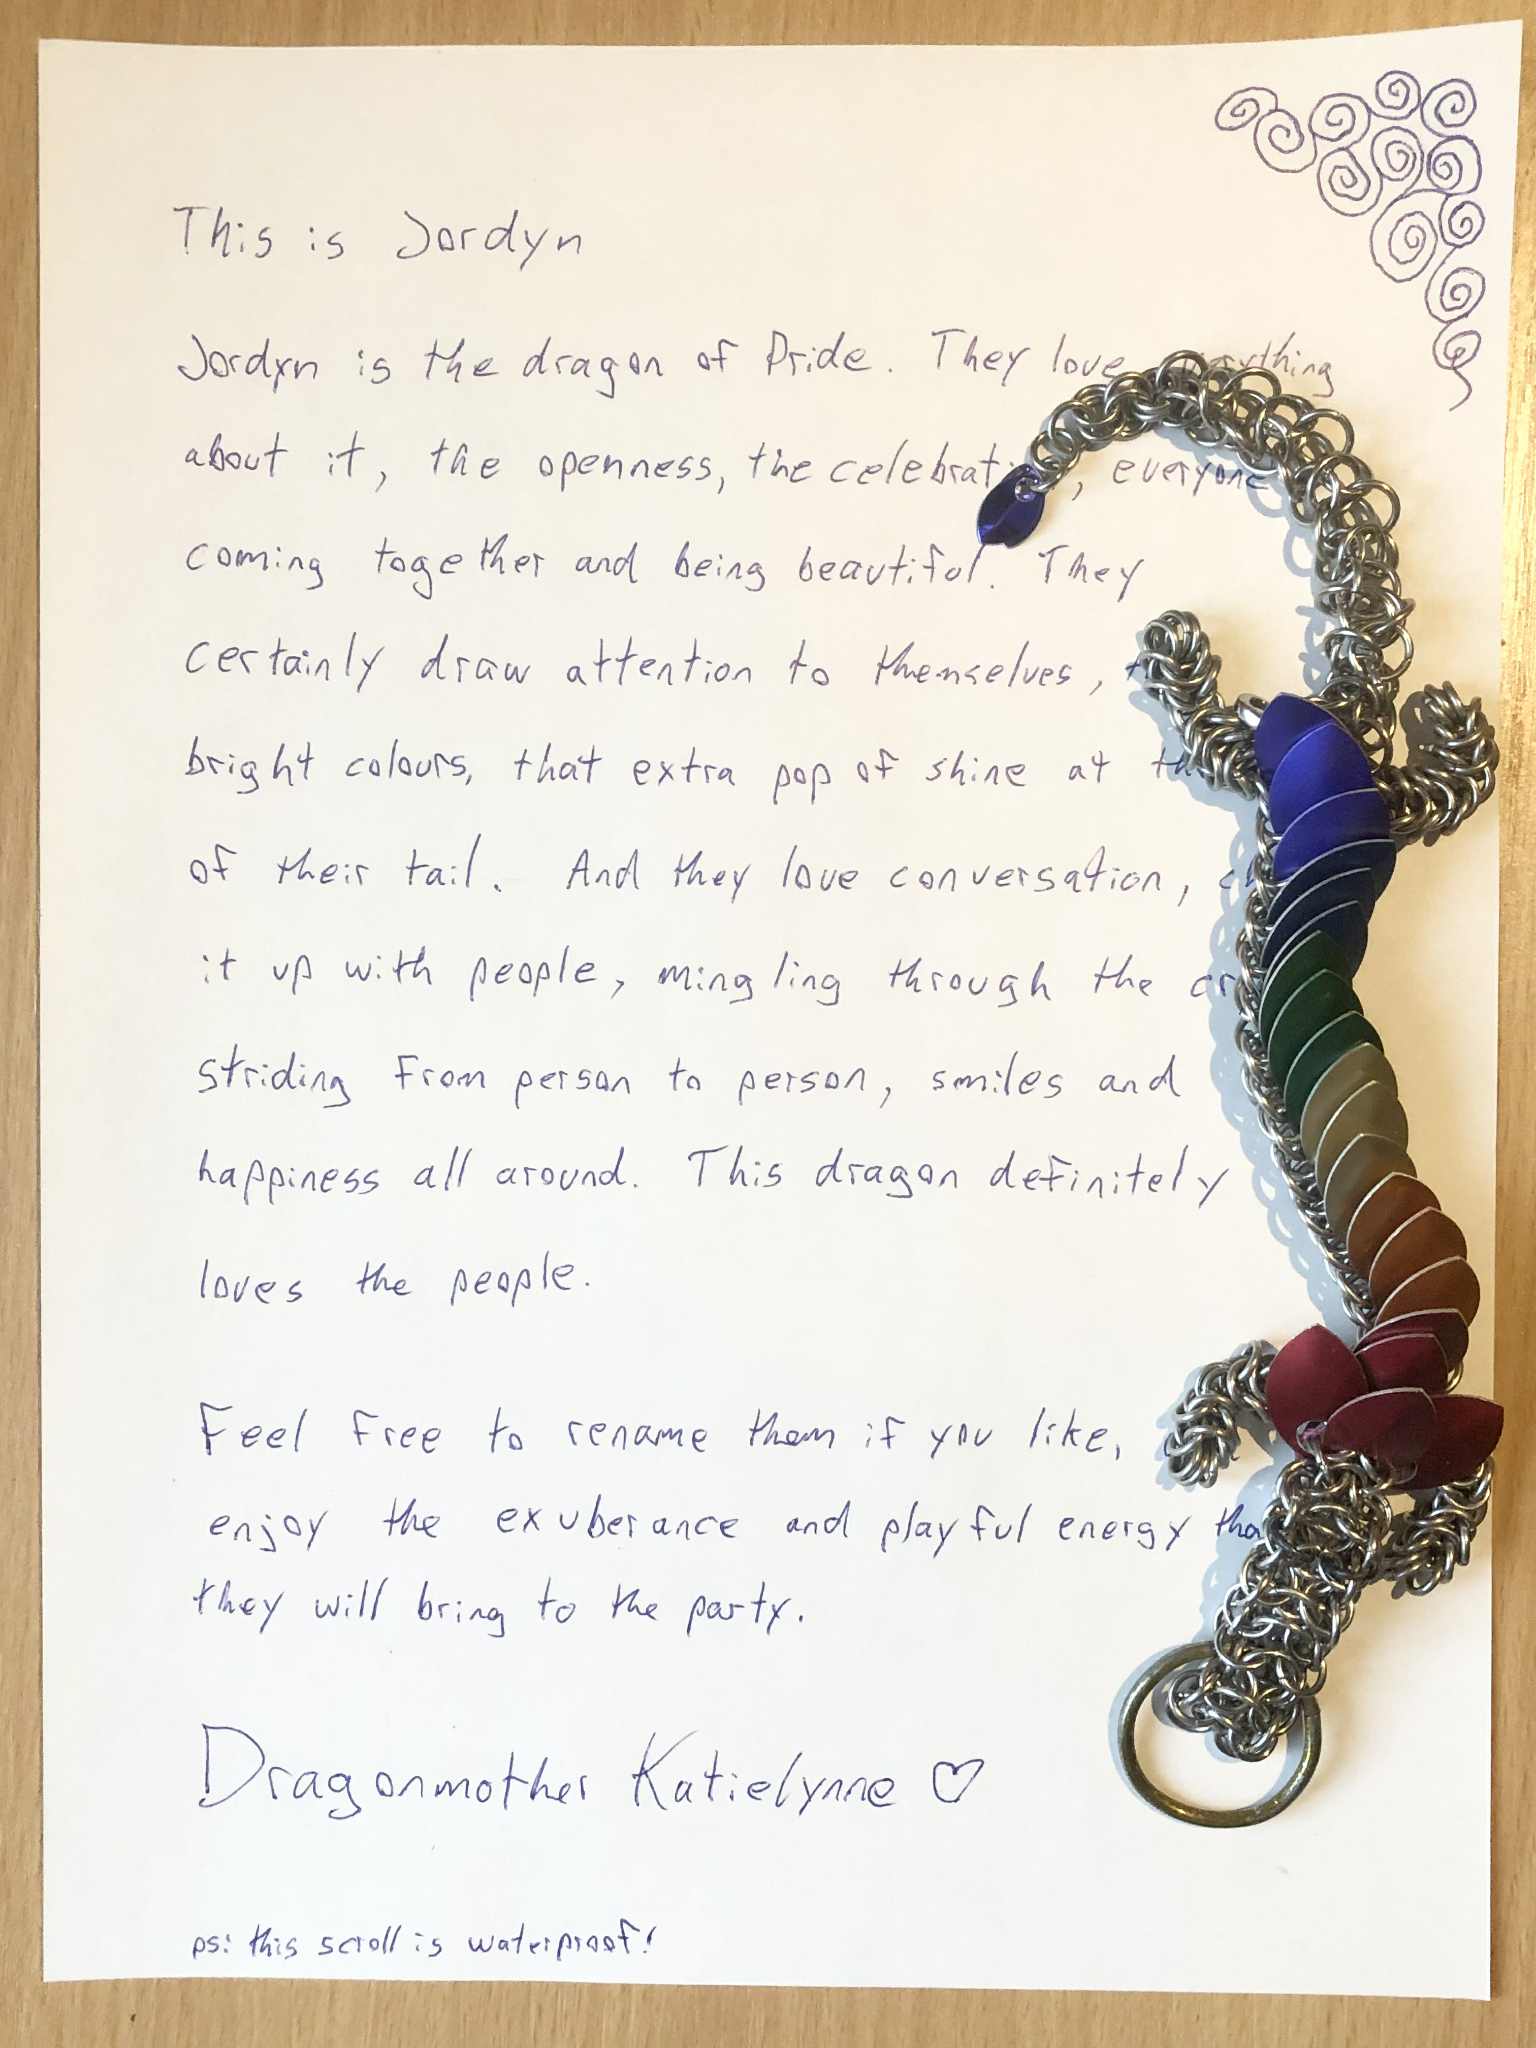 This is Jordyn
Jordyn is the dragon of Pride. They love everything
about it, the openness, the celebration, everyone
coming together and being beautiful. They
certainly draw attention to themselves,
bright colours, that extra pop of shine at
of their tail. And they love conversation,
it up with people, mingling through the
striding from person to person, smiles and
happiness all around. This dragon definitely
loves the people.
Feel free to rename them if you like,
enjoy the exuberance and playful energy that
they will bring to the party.
Dragonmother Katielynne ♡
ps: this scroll is waterproof!